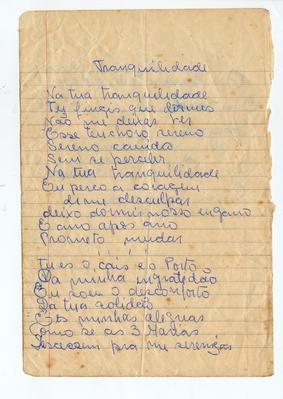 Tranquilidade
Na tua tranquilidade
Tu finges que dormes
Não me deixas ver
Esse teu choro sereno
Sereno
Sem se perceber
Na tua tranquilidade
Eu perco a coragem
de me desculpar
deixo dormir nosso engano
E ano após ano
Prometo mudar
Tu es o cais do Porto
Da minha ingratidão
Eu sou o desconforto
Da tua solidão
minhas alegrias
Como se as 3 Marias
pra me